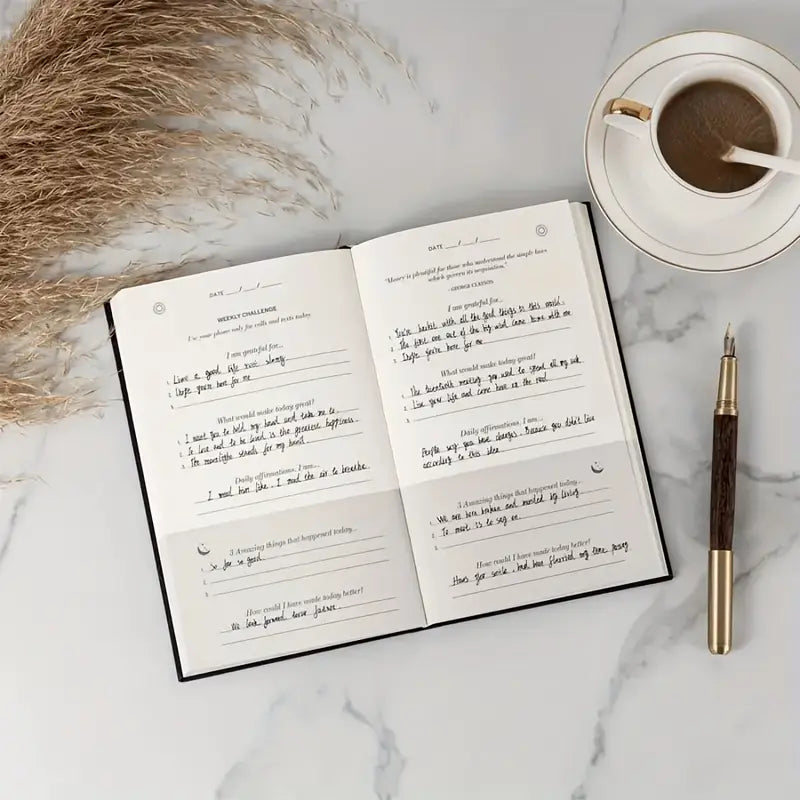 DATE __/__/__
WEEKLY CHALLENGE
Use your phone only for calls and texts today
I am grateful for...
1. Live a good life
2. I hope you're here for me
3.
What would make today great?
1. I want you to hold my hand and take me to
2. To love and to be kind is the greatest happiness.
3. The moonlight stands for my heart
Daily affirmations, I am...
I need him like. I need the air to breathe
3 Amazing things that happened today...
1. So far so good
2.
3.
How could I have made today better?
We look forward
DATE __/__/__
"Money is plentiful for those who understand the simple laws
which govern its acquisition."
- GEORGE CLASON
I am grateful for...
1. You're with all the good things in this world.
2. The first one out of the big wind come home with me
3. I hope you're here for me
What would make today great?
1. The twentieth you used to spend all my
2. Live your life and come here on the road
3.
Daily affirmations, I am...
People say you have changes. Because you didn't live
according to this idea
3 Amazing things that happened today...
1. We are born broken and mended by living
2. To meet is to say
3.
How could I have made today better?
your smile, had been my time